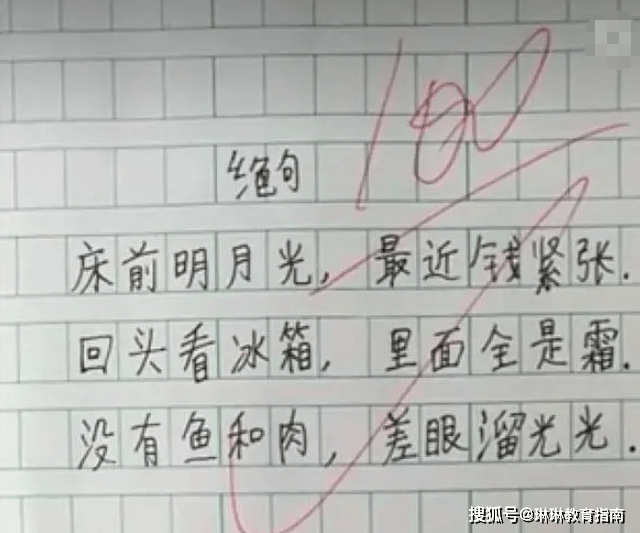 100
绝句
床前明月光，最近钱紧张．
回头看冰箱，里面全是霜．
没有鱼和肉，差眼溜光光．
搜狐号@琳琳教育指南